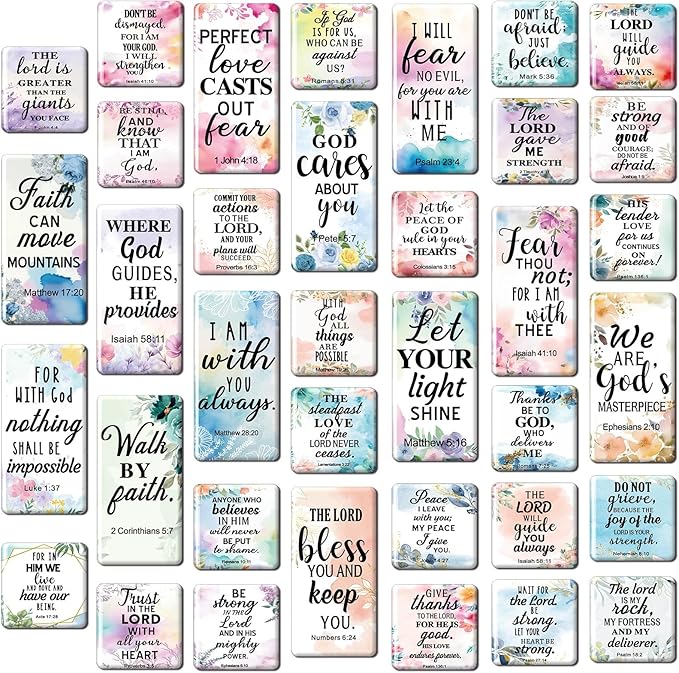 THE
lord is
GREATER
THAN THE
giants
YOU FACE
1 John 4:4
Faith
CAN
move
MOUNTAINS
Matthew 17:20
FOR
WITH God
nothing
SHALL BE
impossible
Luke 1:37
FOR IN
HIM WE
live
AND MOVE AND
have our
BEING.
Acts 17:28
DON'T BE
dismayed,
FOR I AM
YOUR GOD.
I WILL
strengthen
YOU
Isaiah 41:10
BE STILL,
AND
know
THAT
I AM
God.
WHERE
God
GUIDES,
HE
provides
Isaiah 58:11
Walk
BY
faith.
2 Corinthians 5:7
Trust
IN THE
LORD
WITH
all your
HEART
Proverbs 3:5
PERFECT
love
CASTS
OUT
fear
1 John 4:18
COMMIT YOUR
actions
TO THE
LORD,
AND YOUR
plans will
SUCCEED.
Proverbs 16:3
I AM
with
YOU
always.
Matthew 28:20
ANYONE WHO
believes
IN HIM
will never
BE PUT
to shame.
Romans 10:11
BE
strong
IN THE
LORD
AND IN HIS
mighty
POWER.
Ephesians 6:10
If God
IS FOR US,
WHO CAN BE
against
US?
Romans 8:31
GOD
cares
ABOUT
you
Peter 5:7
WITH
God
ALL
things
ARE
POSSIBLE
Matthew 19:26
THE
steadfast
LOVE
of the
LORD NEVER
CEASES.
Lamentations 3:22
THE LORD
bless
YOU AND
keep
YOU.
Numbers 6:24
I WILL
fear
NO EVIL,
for you are
WITH
ME
Psalm 23:4
Let the
PEACE OF
GOD
rule in your
HEARTS
Colossians 3:15
Let
YOUR
light
SHINE
Matthew 5:16
Peace
I LEAVE
with you;
MY PEACE
I give
YOU.
John 14:27
GIVE
thanks
TO THE LORD,
FOR HE IS
good.
HIS LOVE
endures forever.
Psalm 136:1
DON'T BE
afraid;
JUST
believe.
Mark 5:36
The
LORD
gave
ME
STRENGTH
2 Timothy 4:17
Fear
THOU
not;
FOR I AM
with
THEE
Isaiah 41:10
Thanks
BE TO
GOD,
WHO
delivers
ME
Romans 7:25
THE
LORD
will
guide
YOU
always
Isaiah 58:11
WAIT FOR
the Lord.
BE
strong.
LET YOUR
HEART BE
strong.
Psalm 27:14
THE
LORD
will
guide
YOU
ALWAYS.
Isaiah 58:11
BE
strong
AND OF
good
COURAGE;
DO NOT BE
afraid.
Joshua 1:9
HIS
tender
LOVE
for us
CONTINUES
ON
forever!
Psalm 136:1
We
ARE
God's
MASTERPIECE
Ephesians 2:10
DO NOT
grieve,
BECAUSE THE
joy of the
LORD IS YOUR
strength.
Nehemiah 8:10
The lord
IS MY
rock,
MY FORTRESS
AND MY
deliverer.
Psalm 18:2